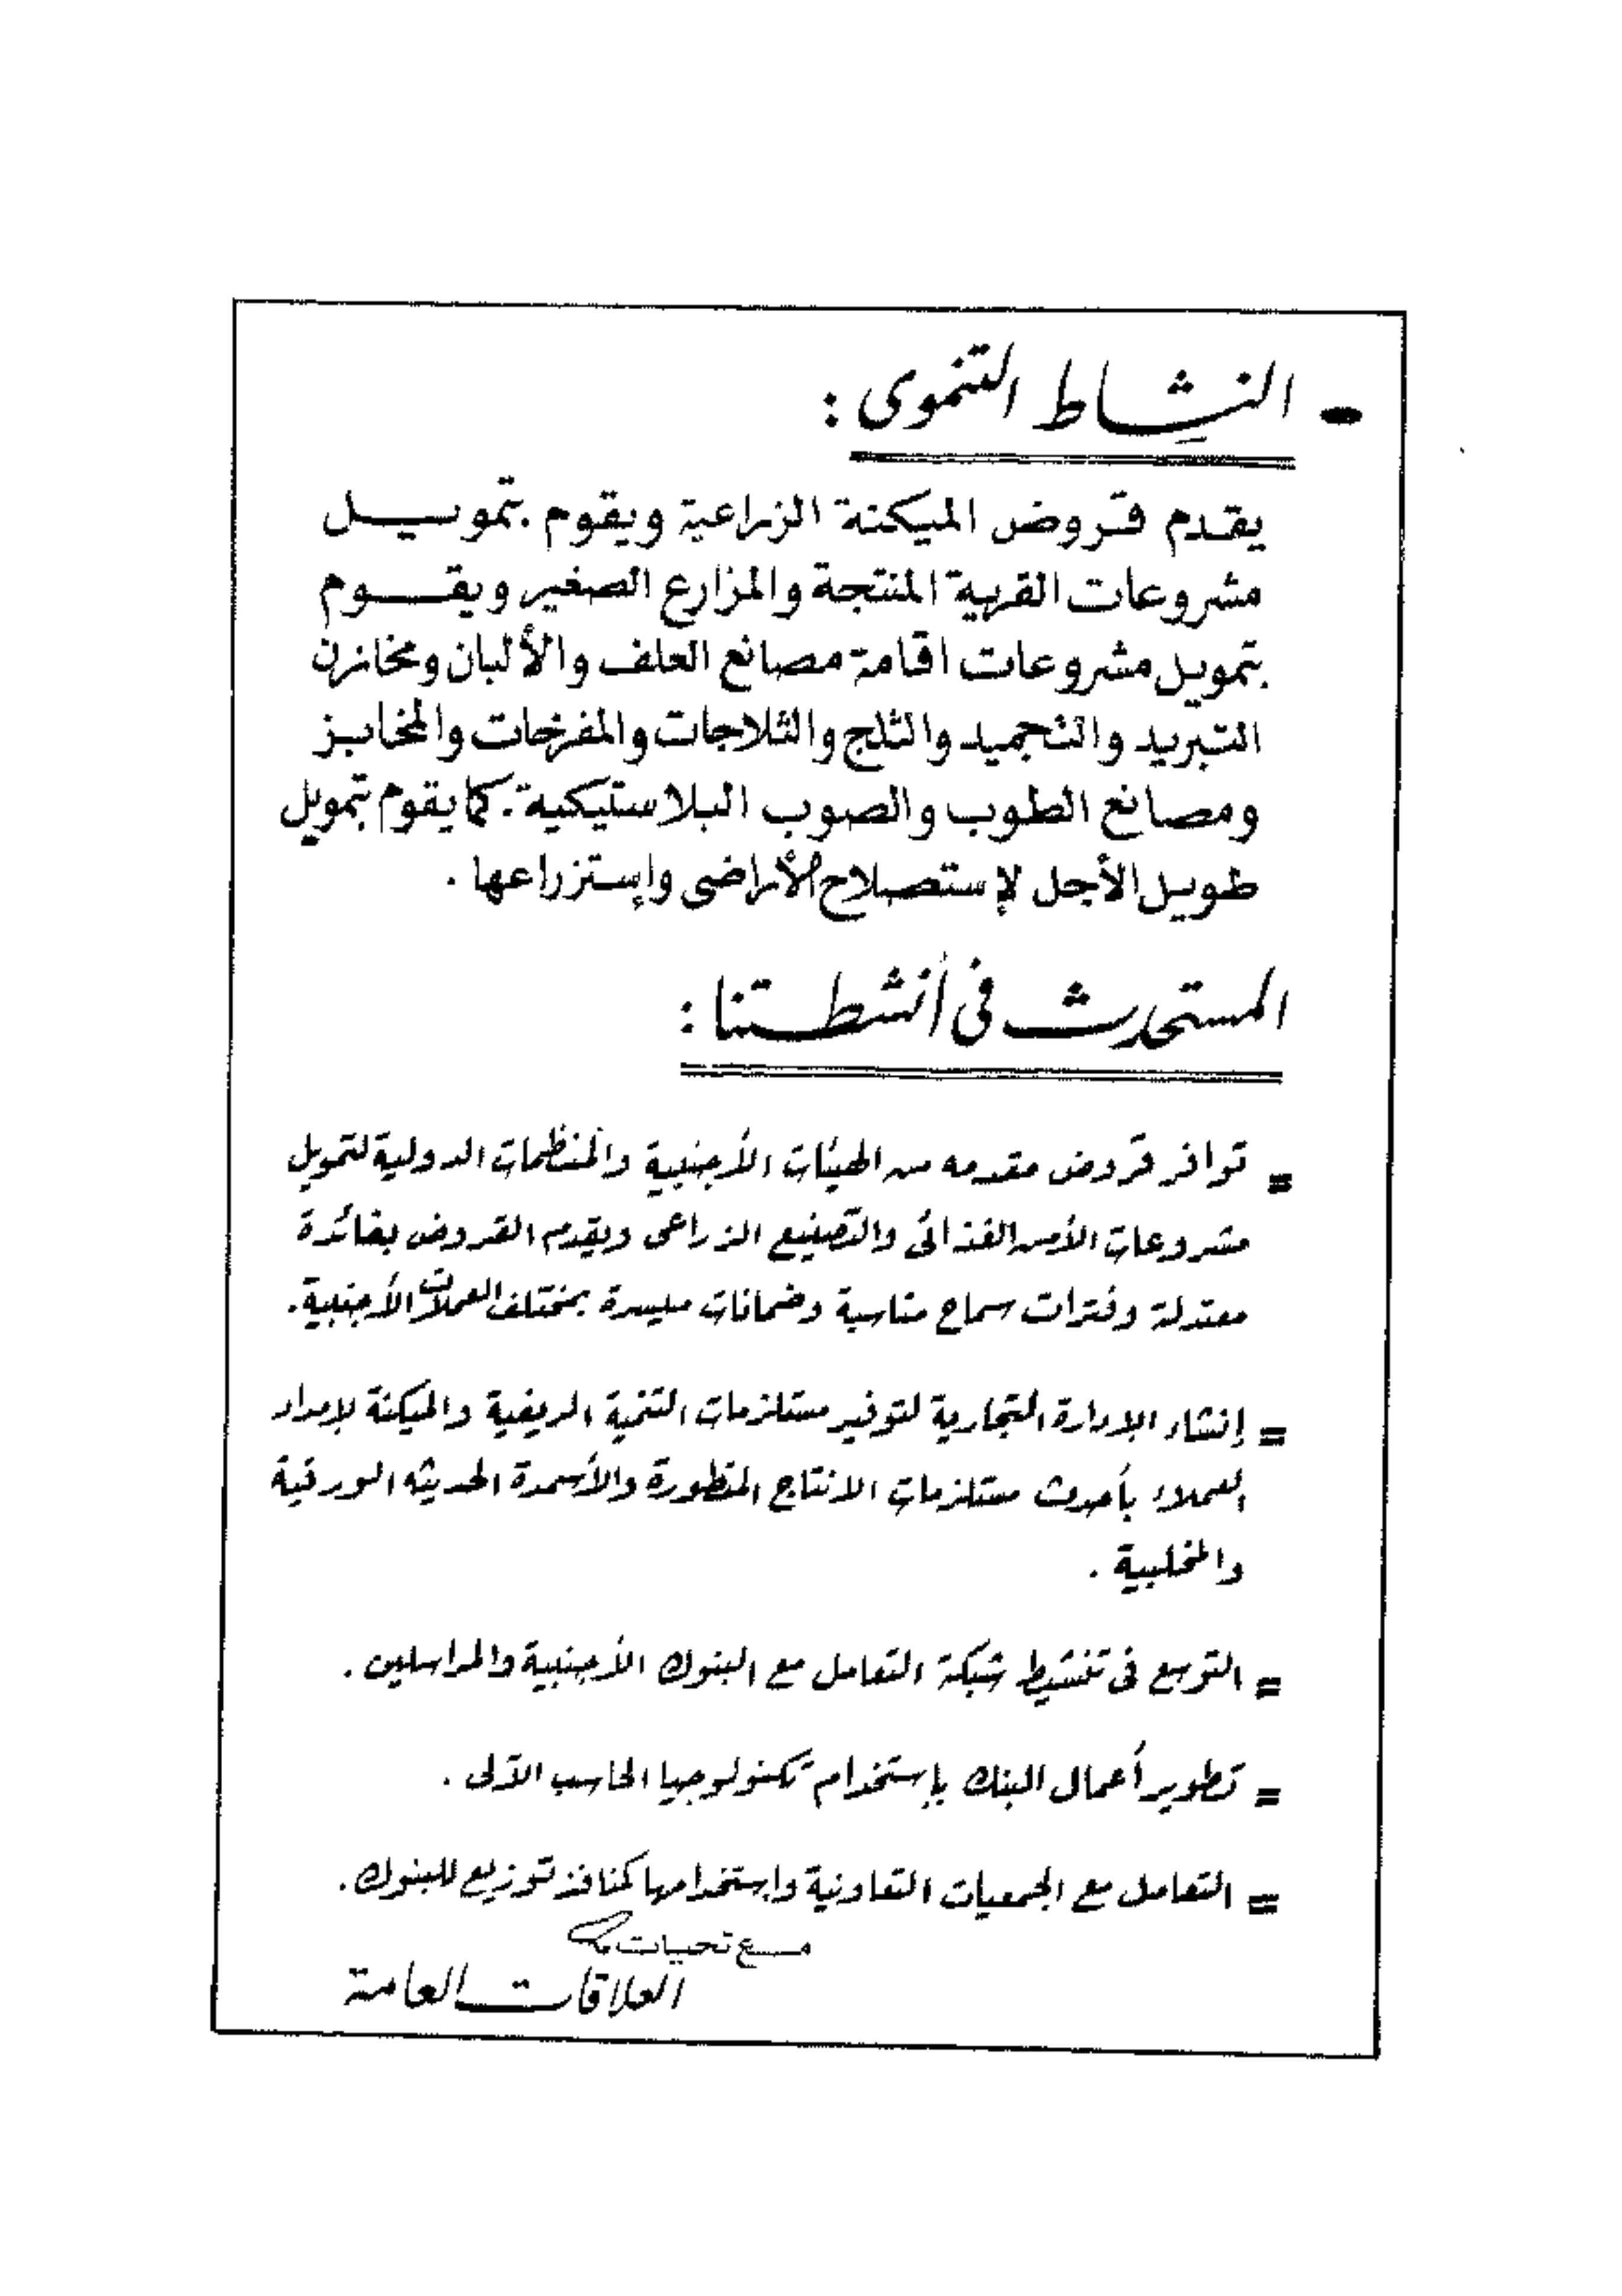 - النشاط التنموى :
يقدم قروض الميكنة الزراعية ويقوم بتمويل
مشروعات القرية المنتجة والمزارع الصغير ويقوم
بتمويل مشروعات اقامة مصانع العلف والألبان ومخازن
التبريد والتجميد والثلج والثلاجات والمفرخات والمخابز
ومصانع الطوب والصوب البلاستيكية . كما يقوم بتمويل
طويل الأجل لإستصلاح الأراضى وإستزراعها .
المستحدث فى أنشطتنا :
= توافر قروض مقدمه من الهيئات الأجنبية والمنظمات الدولية لتمويل
مشروعات الأمن الغذائى والتصنيع الزراعى ويقدم القروض بفائدة
معتدلة وفترات سماح مناسبة وضمانات ميسرة بمختلف العملات الأجنبية .
= إنشاء الإدارة التجارية لتوفير مستلزمات التنمية الريفية والميكنة لإمداد
العملاء بأحدث مستلزمات الانتاج المتطورة والأسمدة الحديثه الورقية
والمخلبية .
= التوسع فى تنشيط شبكة التعامل مع البنوك الأجنبية والمراسلين .
= تطوير أعمال البنك بإستخدام تكنولوجيا الحاسب الآلى .
= التعامل مع الجمعيات التعاونية واستخدامها كمنافذ توزيع للبنوك .
مع تحيات
العلاقات العامة